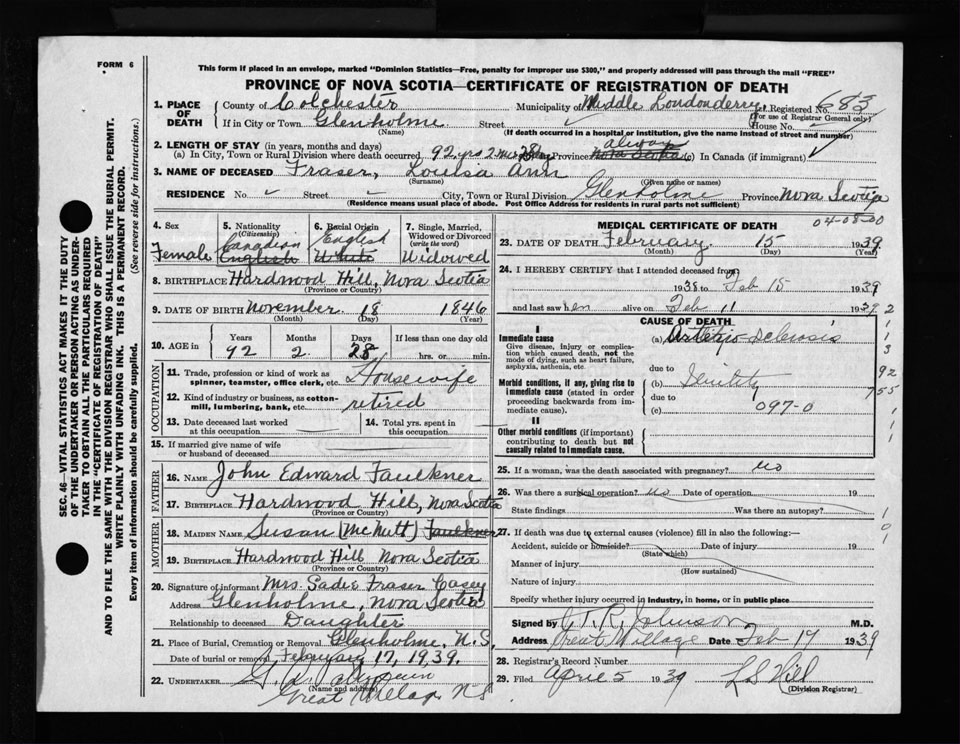 FORM 6
This form if placed in an envelope, marked "Dominion Statistics—Free, penalty for improper use $300," and properly addressed will pass through the mail "FREE"
PROVINCE OF NOVA SCOTIA—CERTIFICATE OF REGISTRATION OF DEATH
1. PLACE OF DEATH County of Colchester Municipality of Middle Londonderry Registered No. 683
(For use of Registrar General only)
If in City or Town Glenholme Street House No.
(Name) (If death occurred in a hospital or institution, give the name instead of street and number)
2. LENGTH OF STAY (in years, months and days)
(a) In City, Town or Rural Division where death occurred 92 yrs 2 mos 28 days Province Nova Scotia always (c) In Canada (if immigrant)
3. NAME OF DECEASED Fraser, Louisa Ann
(Surname) (Given name or names)
RESIDENCE No. Street City, Town or Rural Division Glenholme Province Nova Scotia
(Residence means usual place of abode. Post Office Address for residents in rural parts not sufficient)
04-08-00
4. Sex Female
5. Nationality (Citizenship) Canadian English
6. Racial Origin English White
7. Single, Married, Widowed or Divorced (write the word) Widowed
8. BIRTHPLACE Hardwood Hill, Nova Scotia
(Province or Country)
9. DATE OF BIRTH November 18 1846
(Month) (Day) (Year)
10. AGE in Years Months Days If less than one day old
92 2 28 hrs. or min.
OCCUPATION
11. Trade, profession or kind of work as spinner, teamster, office clerk, etc. Housewife
12. Kind of industry or business, as cotton-mill, lumbering, bank, etc. retired
13. Date deceased last worked at this occupation
14. Total yrs. spent in this occupation
15. If married give name of wife or husband of deceased
FATHER
16. NAME John Edward Faulkner
17. BIRTHPLACE Hardwood Hill, Nova Scotia
(Province or Country)
MOTHER
18. MAIDEN NAME Susan (McNutt) Faulkner
19. BIRTHPLACE Hardwood Hill Nova Scotia
(Province or Country)
20. Signature of informant Mrs. Sadie Fraser Casey
Address Glenholme, Nova Scotia
Relationship to deceased Daughter
21. Place of Burial, Cremation or Removal Glenholme, N.S.
Date of burial or removal February 17, 1939.
22. UNDERTAKER G.
(Name and address)
Great Village N.S.
MEDICAL CERTIFICATE OF DEATH
23. DATE OF DEATH February 15 1939
(Month) (Day) (Year)
24. I HEREBY CERTIFY that I attended deceased from
1938 to Feb 15 1939
and last saw her alive on Feb 11 1939
CAUSE OF DEATH
I
Immediate cause
Give disease, injury or complication which caused death, not the mode of dying, such as heart failure, asphyxia, asthenia, etc.
(a) Arterio-sclerosis
due to
Morbid conditions, if any, giving rise to immediate cause (stated in order proceeding backwards from immediate cause).
(b) Senility
due to
(c) 097-0
II
Other morbid conditions (if important) contributing to death but not causally related to immediate cause.
25. If a woman, was the death associated with pregnancy? no
26. Was there a surgical operation? no Date of operation 19
State findings Was there an autopsy?
27. If death was due to external causes (violence) fill in also the following:—
Accident, suicide or homicide? Date of injury 19
(State which)
Manner of injury
(How sustained)
Nature of injury
Specify whether injury occurred in industry, in home, or in public place
Signed by T. R. Johnson M.D.
Address Great Village Date Feb 17 1939
28. Registrar's Record Number
29. Filed April 5 1939 L S Hill
(Division Registrar)
2
1
1
3
92
755
1
1
1
1
0
1
SEC. 46—VITAL STATISTICS ACT MAKES IT THE DUTY
OF THE UNDERTAKER OR PERSON ACTING AS UNDERTAKER
TO OBTAIN ALL THE PARTICULARS REQUIRED
IN THE "CERTIFICATE OF REGISTRATION OF DEATH"
AND TO FILE THE SAME WITH THE DIVISION REGISTRAR WHO SHALL ISSUE THE BURIAL PERMIT.
WRITE PLAINLY WITH UNFADING INK. THIS IS A PERMANENT RECORD.
Every item of information should be carefully supplied. (See reverse side for instructions.)